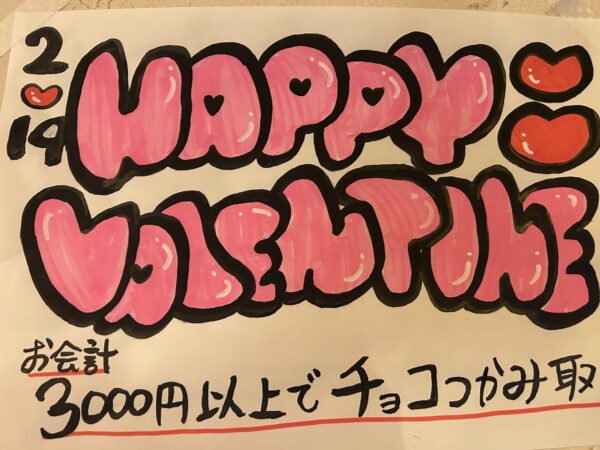 2
14
HAPPY
VALENTINE
お会計
3000円以上でチョコつかみ取